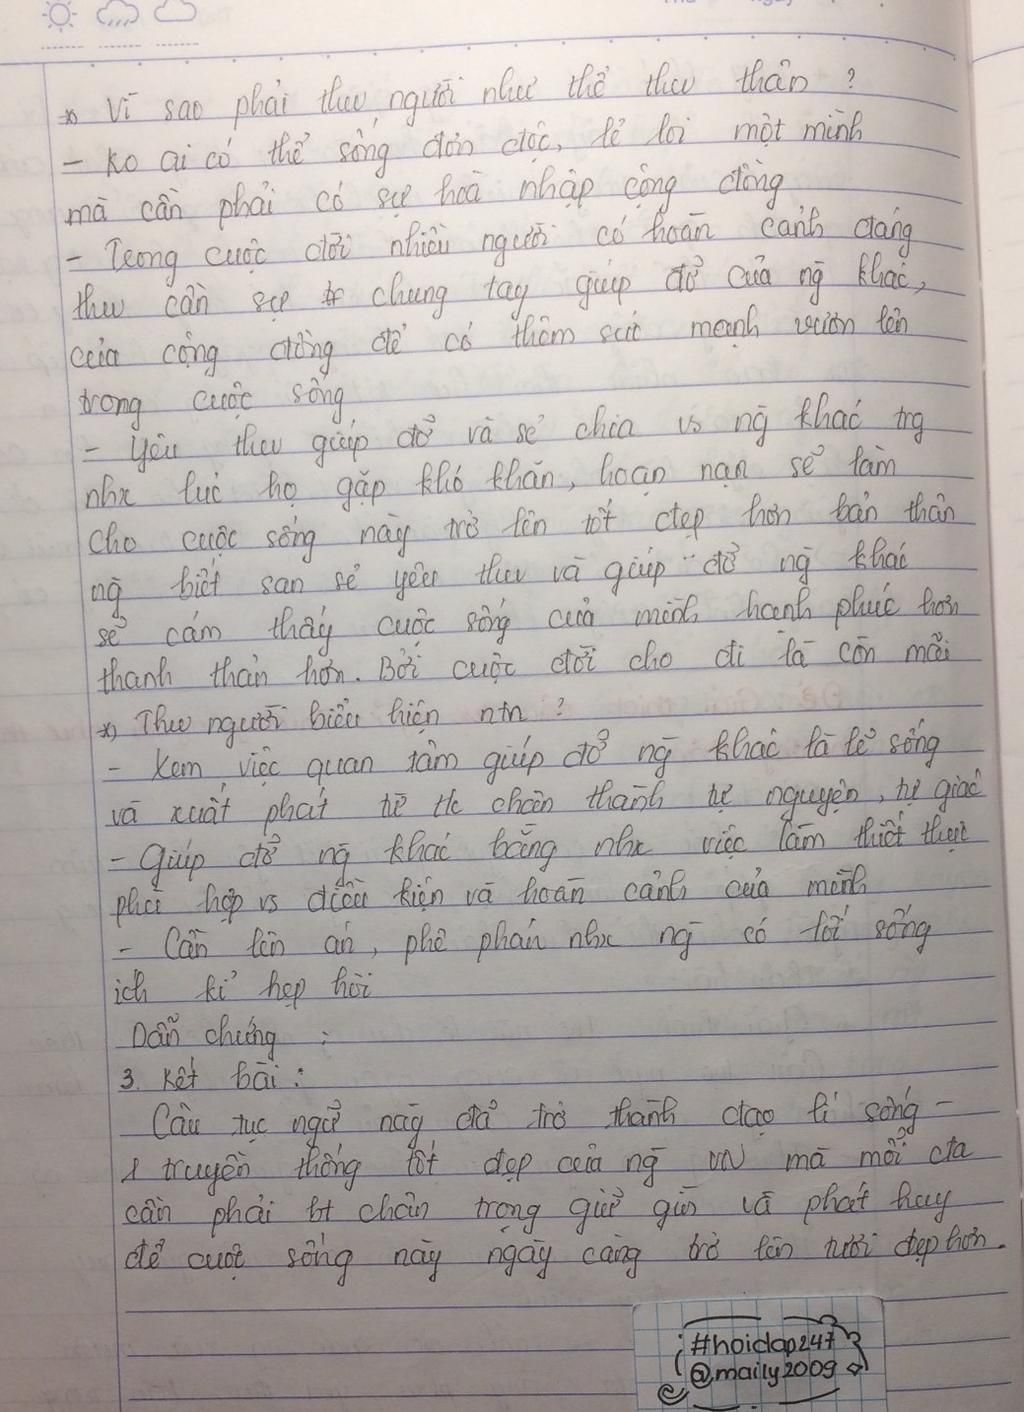 *) Vì sao phải thw người như thể thw thân ?
- Ko ai có thể sống đơn độc, lẻ loi một mình
mà cần phải có sự hoà nhập cộng đồng
- Trong cuộc đời nhiều người có hoàn cảnh đáng
thw cần sự chung tay giúp đỡ của ng̃ khác,
của cộng đồng để có thêm sức mạnh vươn lên
trong cuộc sống
- Yêu thw giúp đỡ và sẻ chia vs ng̃ khác trg
nhx lúc họ gặp khó khăn, hoạn nạn sẽ làm
cho cuộc sống này trở lên tốt đẹp hơn bản thân
ng̃ biết san sẻ yêu thw và giúp đỡ ng̃ khác
sẽ cảm thấy cuộc sống của mình hạnh phúc hơn
thanh thản hơn. Bởi cuộc đời cho đi là còn mãi
*) Thw người biểu hiện ntn ?
- Xem việc quan tâm giúp đỡ ng̃ khác là lẽ sống
và xuất phát từ tc chân thành tự nguyện, tự giác
- Giúp đỡ ng̃ khác bằng nhx việc làm thiết thực
phù hợp vs điều kiện và hoàn cảnh của mình
- Cần lên án, phê phán nhx ng̃ có lối sống
ích kỉ hẹp hòi
Dẫn chứng :
3. Kết bài :
Câu tục ngữ này đã trở thành đạo lí sống -
1 truyền thống tốt đẹp của ng̃ VN mà mỗi cta
cần phải bt chân trọng giữ gìn và phát huy
để cuộc sống này ngày càng trở lên tươi đẹp hơn.
#hoidap247
@maily2009